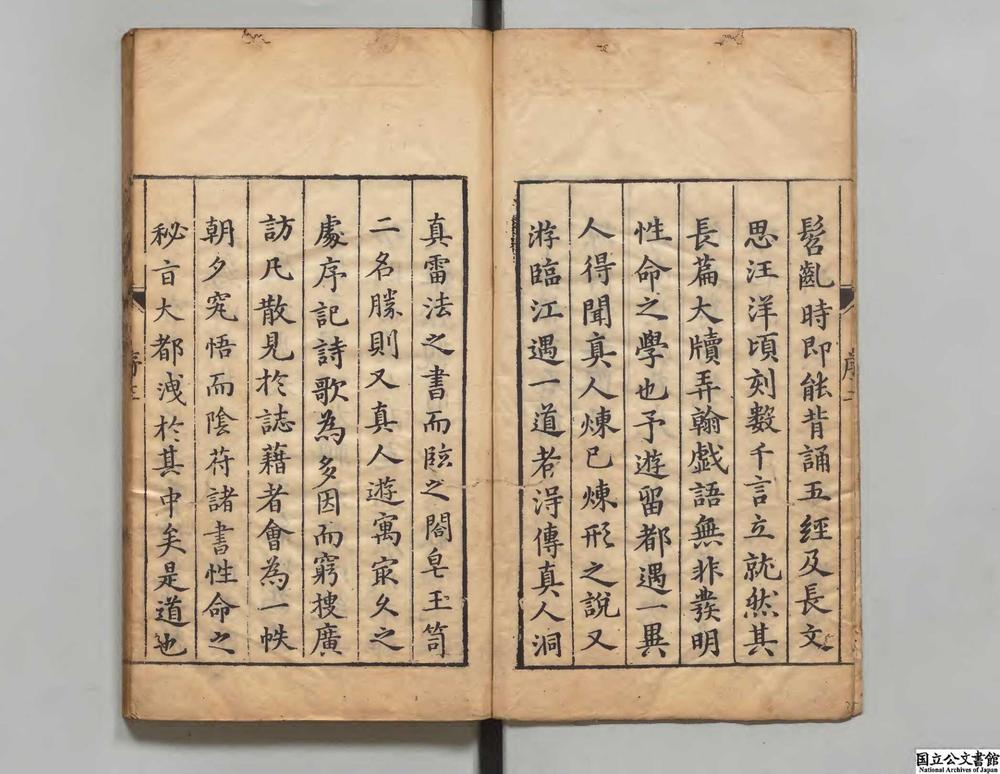 髫齓時即能背誦五經及長文
思汪洋頃刻數千言立就然其
長篇大牘弄翰戲語無非發明
性命之學也予遊留都遇一異
人得聞真人煉已煉形之說又
游臨江遇一道者淂傳真人洞
真雷法之書而臨之閤皂玉笥
二名勝則又真人遊寓㝡久之
處序記詩歌為多因而窮搜廣
訪凡散見於誌藉者會為一帙
朝夕究悟而陰符諸書性命之
秘㫖大都洩於其中矣是道也
序三
国立公文書館
National Archives of Japan